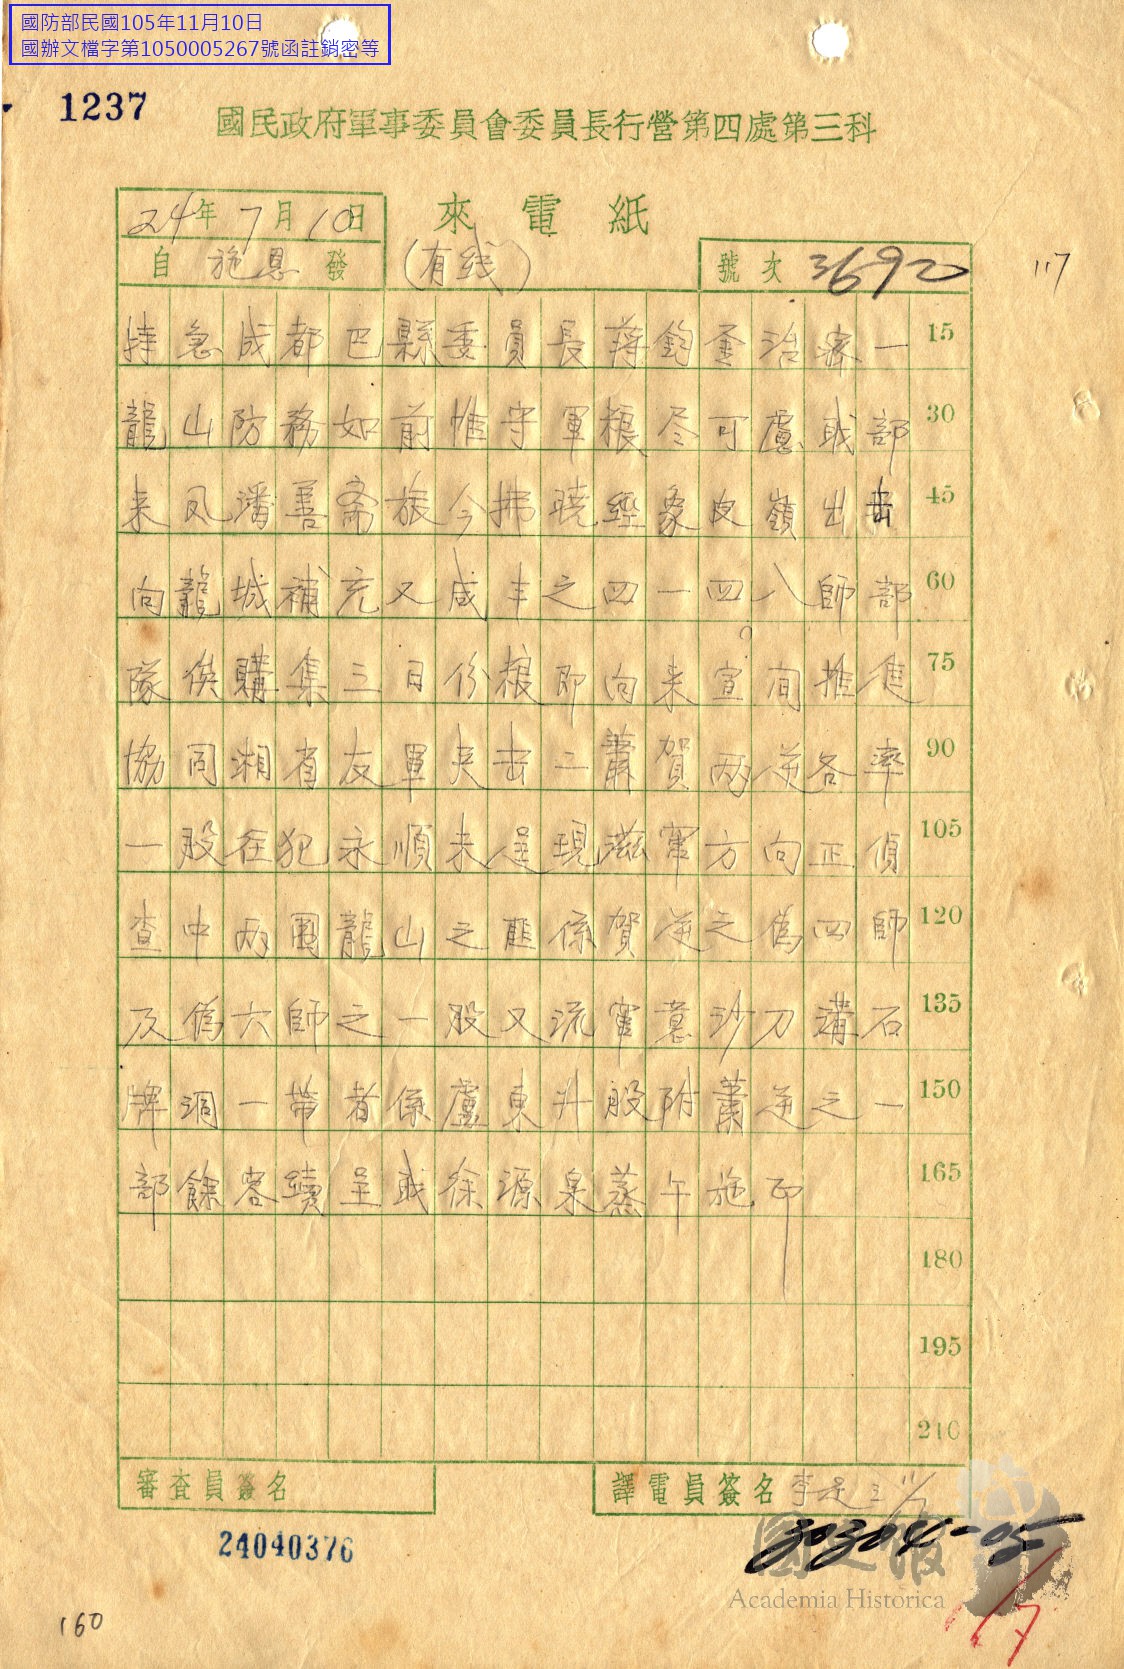 國防部民國105年11月10日
國辦文檔字第1050005267號函註銷密等
1237
國民政府軍事委員會委員長行營第四處第三科
來電紙
24年7月10日
自施恩發
(有线)
號次 3692
117
特急成都巴縣委員長蔣鈞鑒治密一 15
龍山防務如前惟守軍粮尽可慮戝部 30
来凤潘善斋旅今拂晓經象皮嶺出击 45
向龍城補充又咸丰之四一四八師部 60
隊俟購集三日份粮即向来宣间推進 75
協同湘省友軍夾击二蕭賀两逆各率 90
一股在犯永順未逞現滋竄方向正偵 105
查中两圍龍山之匪係賀逆之偽四師 120
及偽六師之一股又流竄意沙刀溝石 135
牌洞一带者係盧東升股附蕭逆之一 150
部餘容續呈戝徐源泉蒸午施印 165
180
195
210
審查員簽名
譯電員簽名 李
24040376
國史館
Academia Historica
160